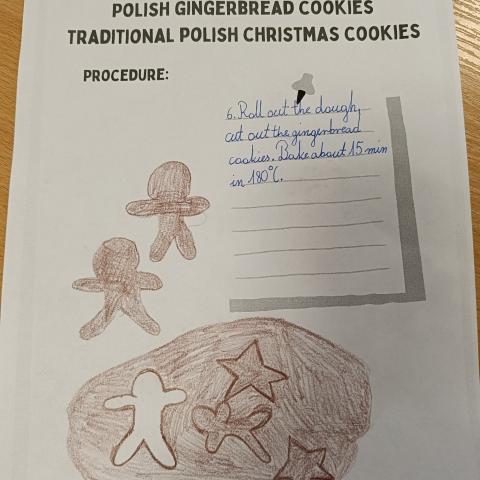 POLISH GINGERBREAD COOKIES
TRADITIONAL POLISH CHRISTMAS COOKIES
PROCEDURE:
6. Roll out the dough,
cut out the gingerbread
cookies. Bake about 15 min
in 180°C.